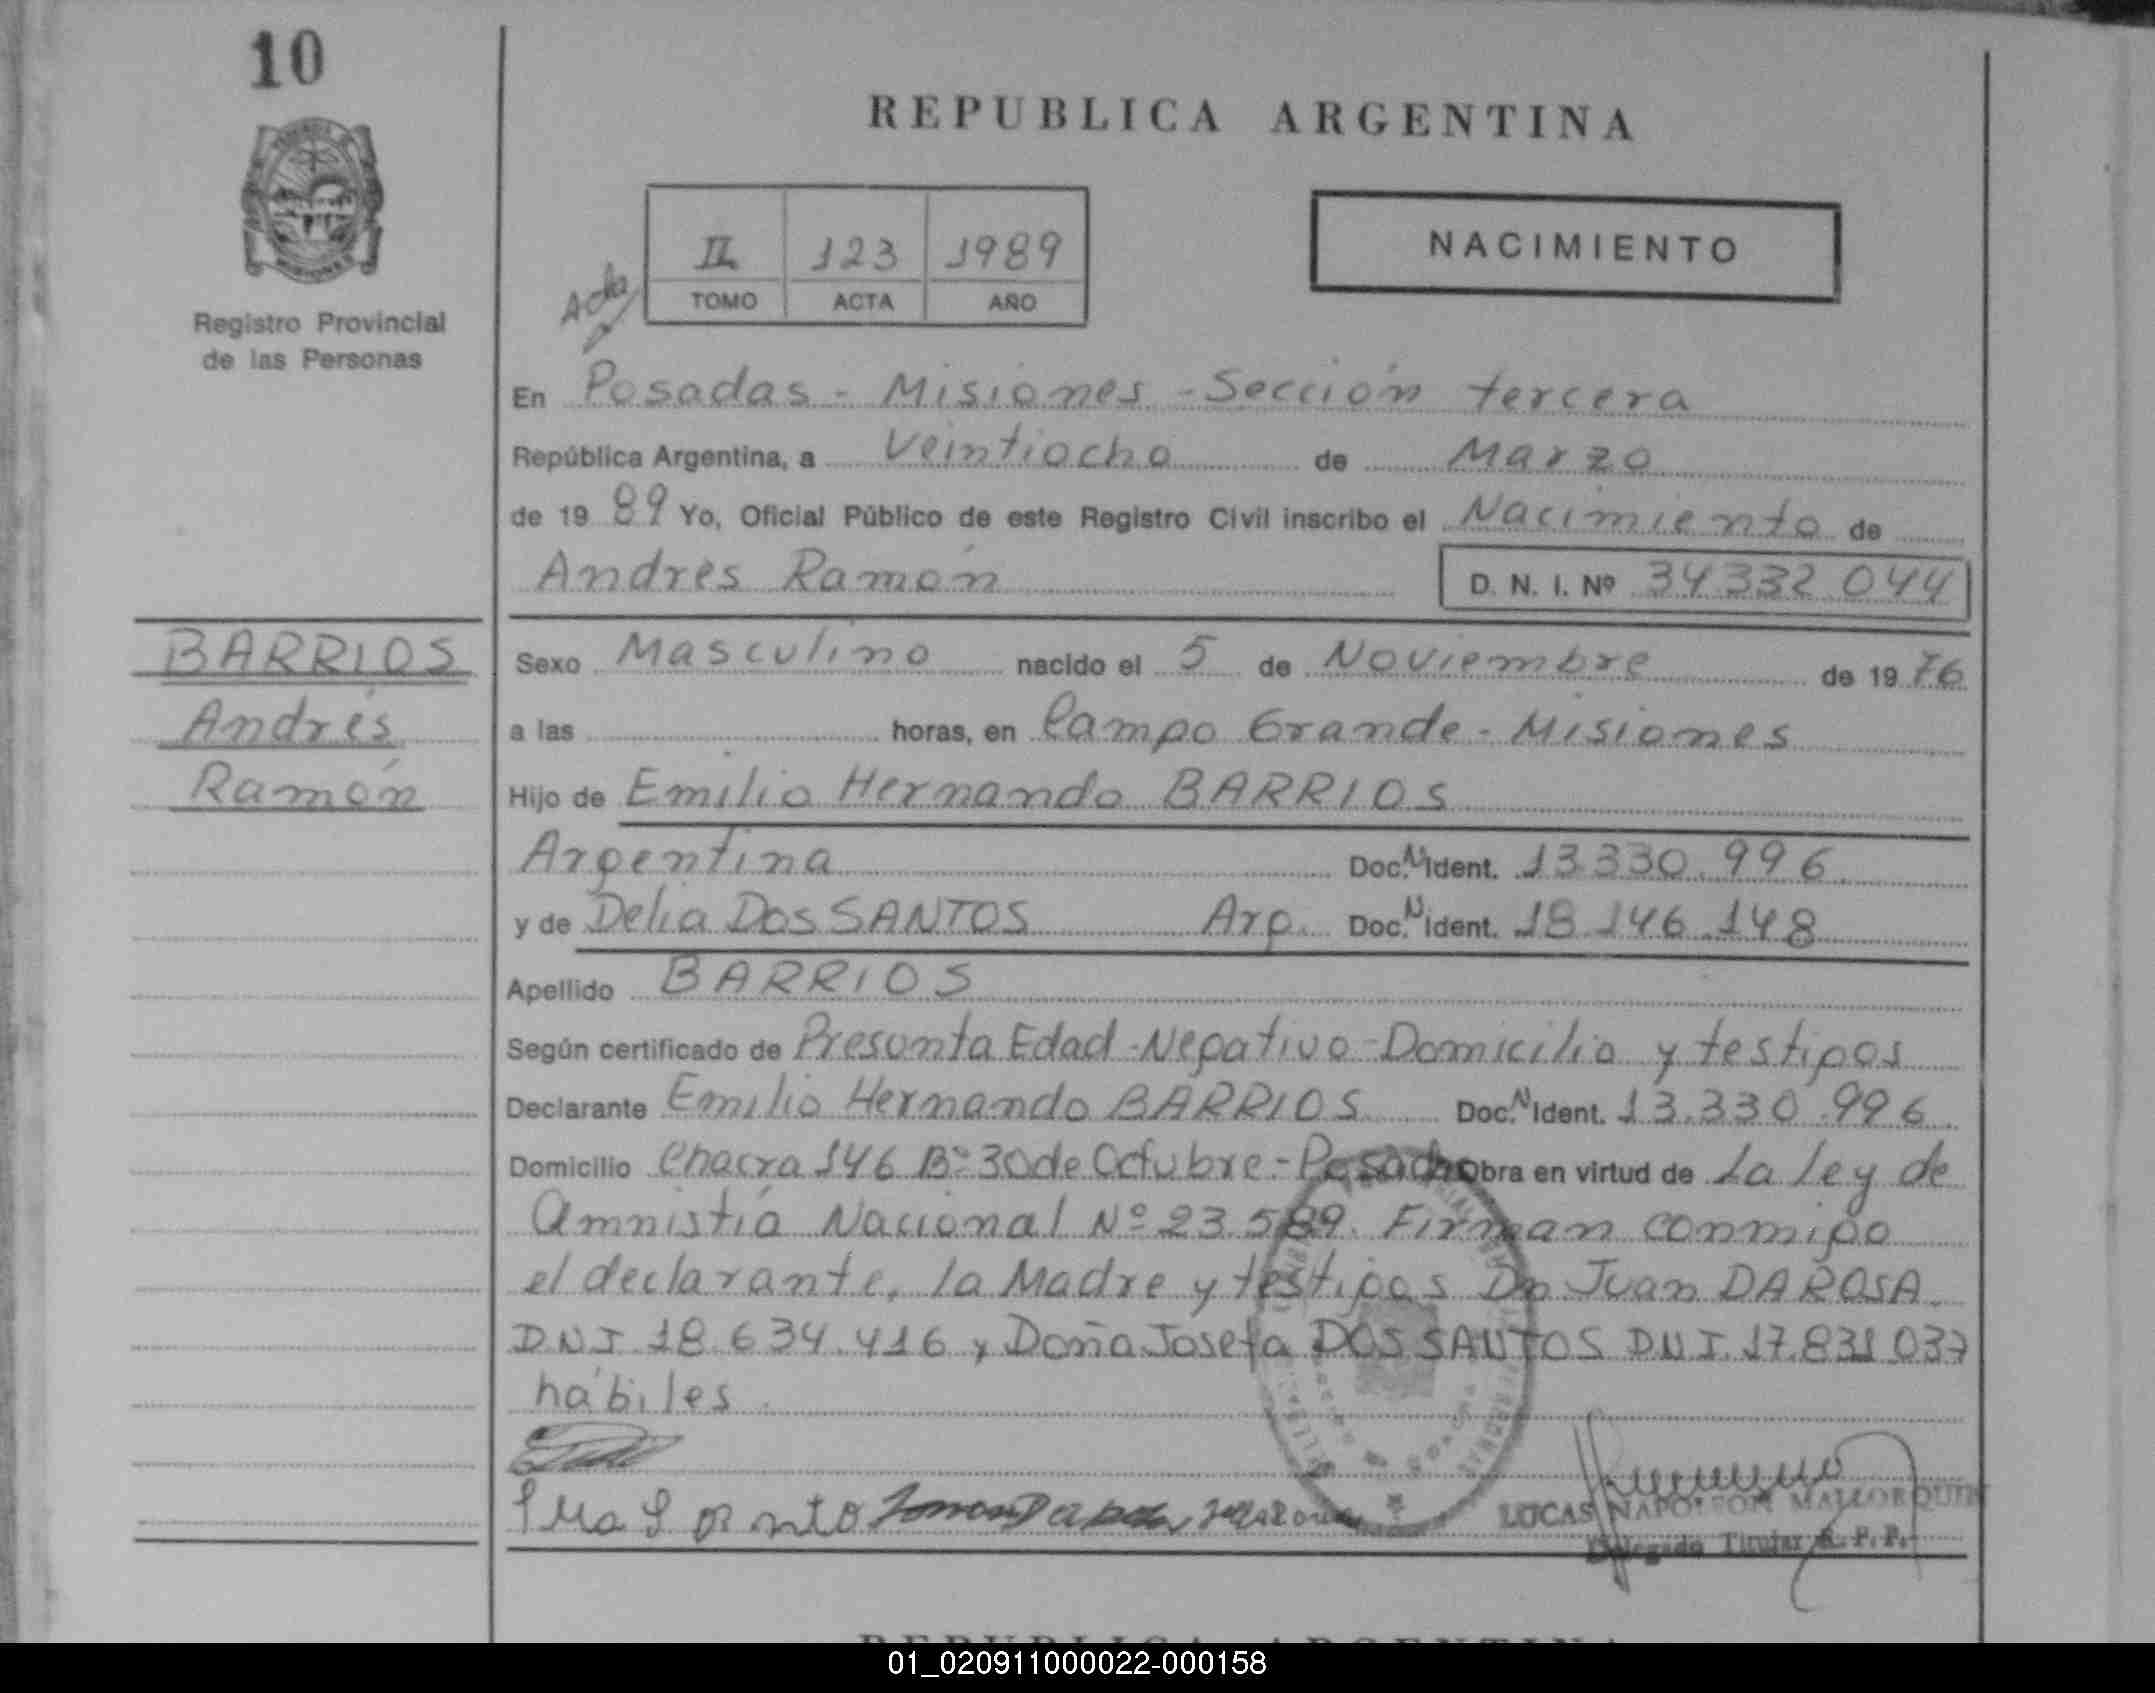 10
REPUBLICA ARGENTINA
II 123 1989
TOMO ACTA AÑO
NACIMIENTO
Acta
Registro Provincial
de las Personas
En Posadas - Misiones - Sección tercera
República Argentina, a Veintiocho de Marzo
de 19 89 Yo, Oficial Público de este Registro Civil inscribo el Nacimiento de
Andres Ramón D. N. I. Nº 34332.044
BARRIOS
Andrés
Ramón
Sexo Masculino nacido el 5 de Noviembre de 19 76
a las horas, en Campo Grande - Misiones
Hijo de Emilio Hernando BARRIOS
Argentina Doc. N Ident. 13.330.996
y de Delia DOS SANTOS Arg. Doc. N Ident. 18.146.148
Apellido BARRIOS
Según certificado de Presunta Edad - Negativo - Domicilio y testigos
Declarante Emilio Hernando BARRIOS Doc. N Ident. 13.330.996.
Domicilio Chacra 146 Bº 30 de Octubre - Posadas Obra en virtud de La ley de
Amnistía Nacional Nº 23.589. Firman conmigo
el declarante, la Madre y testigos Dn Juan DA ROSA
DNI 18.634.416 y Doña Josefa DOS SANTOS DNI. 17.831.037
hábiles.
LUCAS NAPOLEON MALLORQUIN
Delegado Titular R. P. P.
REPUBLICA ARGENTINA
01_020911000022-000158